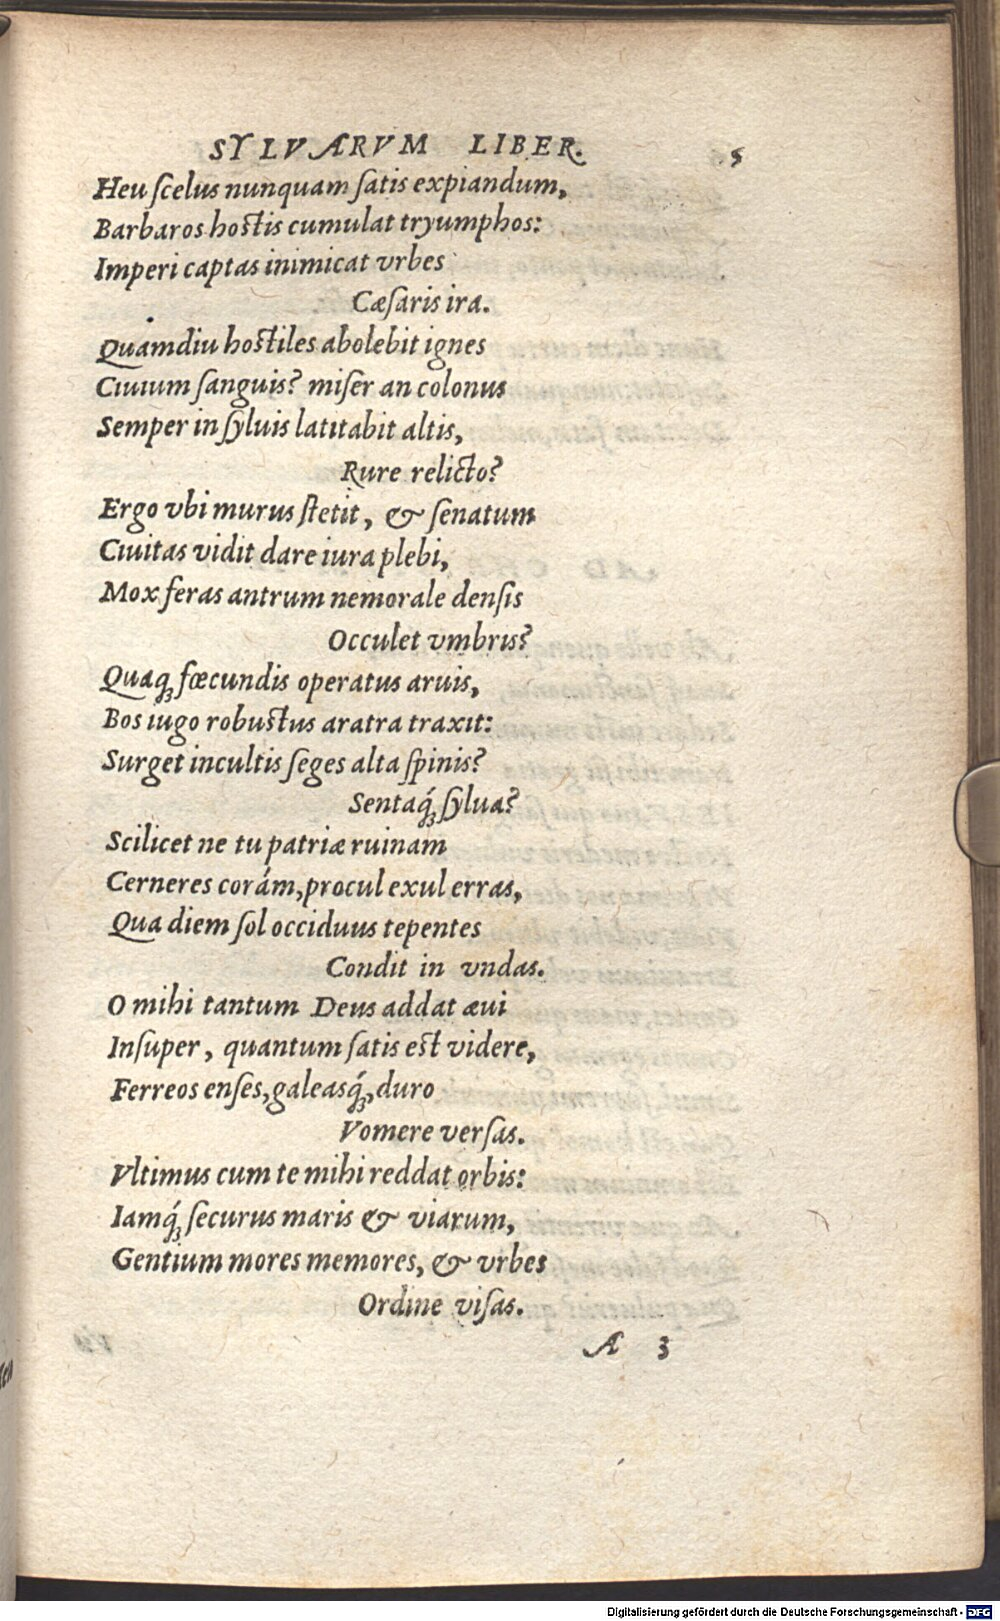 SYLVARVM LIBER. 5
Heu ſcelus nunquam ſatis expiandum,
Barbaros hoſtis cumulat tryumphos:
Imperi captas inimicat vrbes
Cæſaris ira.
Quamdiu hoſtiles abolebit ignes
Ciuium ſanguis? miſer an colonus
Semper in ſyluis latitabit altis,
Rure relicto?
Ergo vbi murus ſtetit, & ſenatum
Ciuitas vidit dare iura plebi,
Mox feras antrum nemorale denſis
Occulet vmbris?
Quaq; fœcundis operatus aruis,
Bos iugo robuſtus aratra traxit:
Surget incultis ſeges alta ſpinis?
Sentaq́; ſylua?
Scilicet ne tu patriæ ruinam
Cerneres corám, procul exul erras,
Qua diem ſol occiduus tepentes
Condit in vndas.
O mihi tantum Deus addat æui
Inſuper, quantum ſatis eſt videre,
Ferreos enſes, galeasq́;, duro
Vomere verſas.
Vltimus cum te mihi reddat orbis:
Iamq́; ſecurus maris & viarum,
Gentium mores memores, & vrbes
Ordine viſas.
A 3
Digitalisierung gefördert durch die Deutsche Forschungsgemeinschaft - DFG